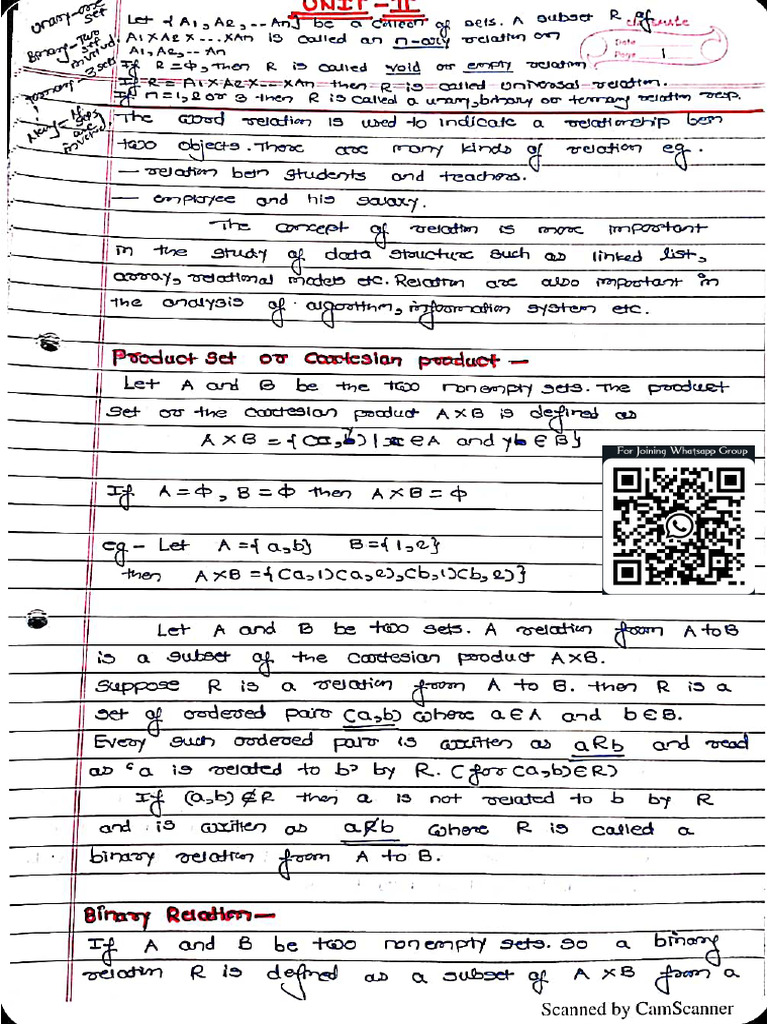 UNIT-II
Let {A1, A2, ..An} be a collection of sets. A subset R of
A1×A2×...×An is called an n-ary relation on
A1, A2, .. An
If R=Φ, then R is called void or empty relation
If R = A1×A2×...×An then R is called universal relation.
If n=1,2 or 3 then R is called a unary, binary or ternary relation resp.
unary-one set
Binary-Two set involved
ternary - 3 sets
N-ary - N sets are involved
Date
Page 1
The word relation is used to indicate a relationship betn
two objects. There are many kinds of relation eg.
— relation betn students and teachers.
— employee and his salary.
The concept of relation is more important
in the study of data structure such as linked list,
array, relational models etc. Relation are also important in
the analysis of algorithm, information system etc.
Product set or Cartesian product —
Let A and B be the two nonempty sets. The product
set or the cartesian product A×B is defined as
A×B = {(a,b) | x∈A and yb ∈ B}
For Joining Whatsapp Group
If A=Φ, B=Φ then A×B=Φ
eg- Let A={a,b} B={1,2}
then A×B={(a,1)(a,2),(b,1)(b,2)}
Let A and B be two sets. A relation from A to B
is a subset of the cartesian product A×B.
Suppose R is a relation from A to B. then R is a
set of ordered pair (a,b) where a∈A and b∈B.
Every such ordered pair is written as aRb and read
as 'a is related to b' by R. (for (a,b)∈R)
If (a,b)∉R then a is not related to b by R
and is written as aR̸b where R is called a
binary relation from A to B.
Binary Relation—
If A and B be two nonempty sets. so a binary
relation R is defined as a subset of A×B from a
Scanned by CamScanner